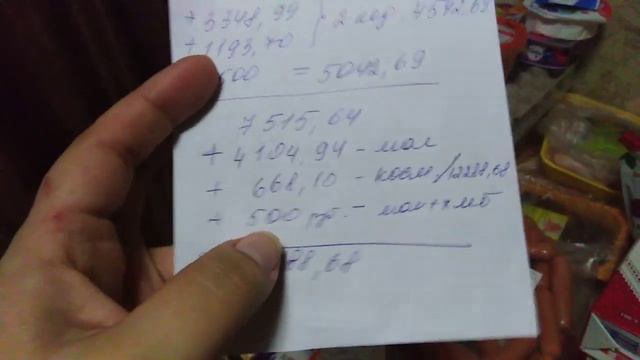 + 3348,99 } 2 код 4542,69
+ 1193,70
500 = 5042,69
7515,64
+ 4104,94 - мол
+ 668,10 - косм /12288,68
+ 500 руб. - мол + хлеб
88,68